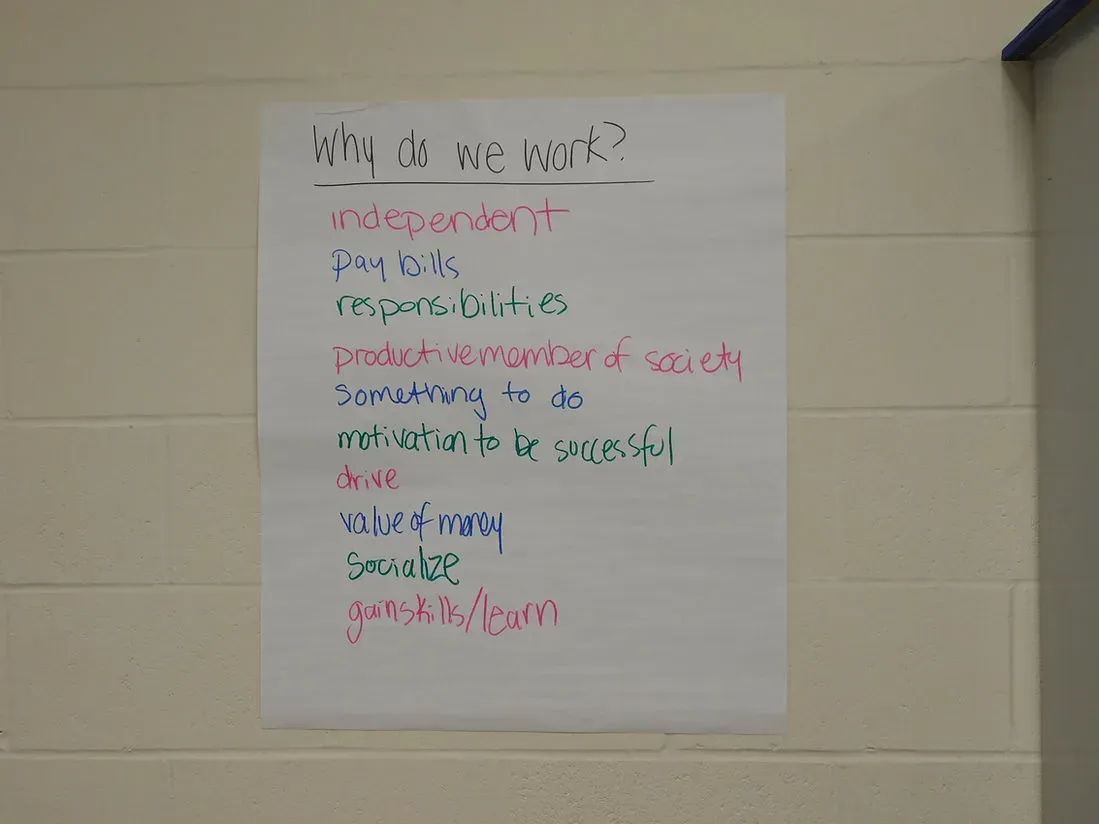 Why do we work?
independent
pay bills
responsibilities
productive member of society
something to do
motivation to be successful
drive
value of money
socialize
gain skills/learn